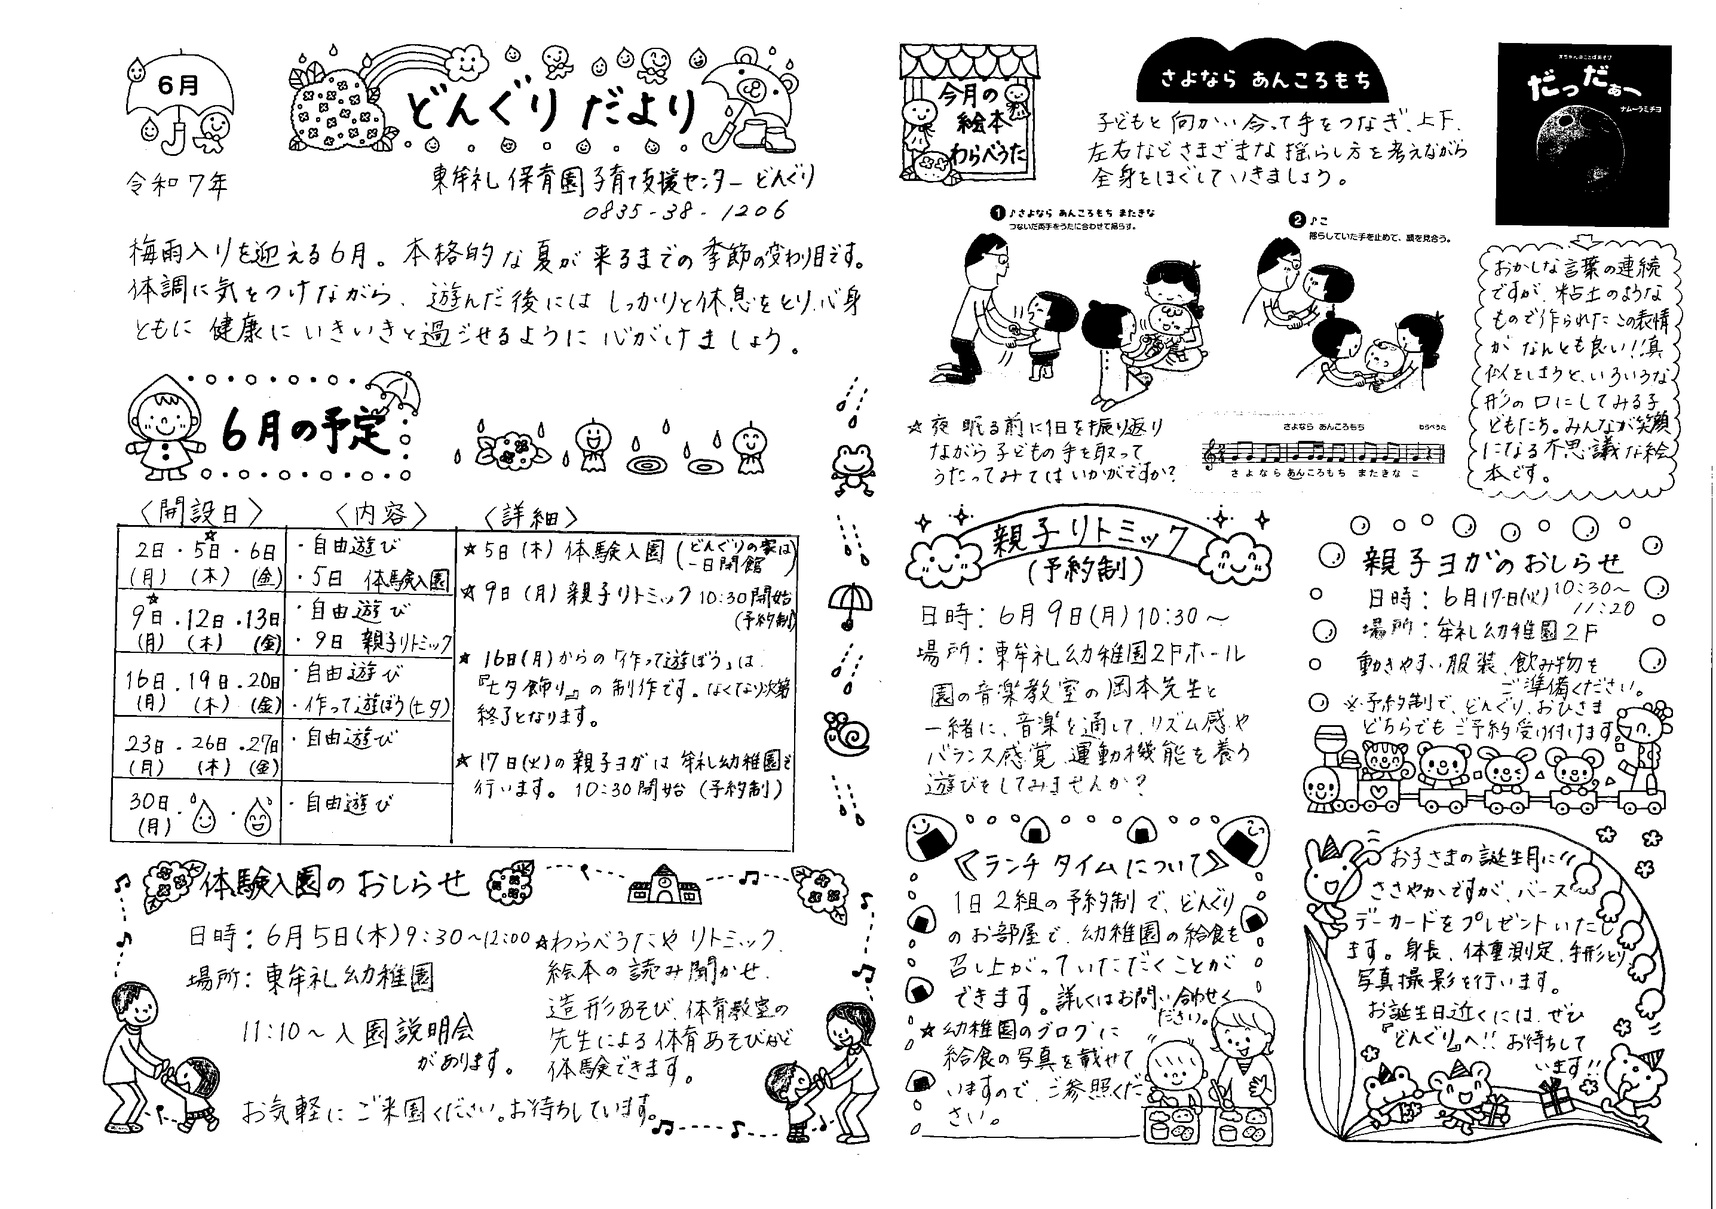 6月
どんぐりだより
令和7年
東牟礼保育園 子育て支援センター どんぐり
0835-38-1206
梅雨入りを迎える6月。本格的な夏が来るまでの季節の変わり目です。
体調に気をつけながら、遊んだ後にはしっかりと休息をとり、心身
ともに健康にいきいきと過ごせるように心がけましょう。
6月の予定
〈開設日〉 〈内容〉 〈詳細〉
2日・5日・6日
(月) (木) (金)
・自由遊び
・5日 体験入園
9日・12日・13日
(月) (木) (金)
・自由遊び
・9日 親子リトミック
16日・19日・20日
(月) (木) (金)
・自由遊び
・作って遊ぼう(七夕)
23日・26日・27日
(月) (木) (金)
・自由遊び
30日
(月)
・自由遊び
☆5日(木)体験入園(どんぐりの家は
一日閉館)
☆9日(月)親子リトミック10:30開始
(予約制)
☆16日(月)からの「作って遊ぼう」は、
『七夕飾り』の制作です。なくなり次第
終了となります。
☆17日(火)の親子ヨガは牟礼幼稚園で
行います。10:30開始(予約制)
体験入園のおしらせ
日時:6月5日(木)9:30~12:00
場所:東牟礼幼稚園
11:10~入園説明会
があります。
☆わらべうたやリトミック、
絵本の読み聞かせ、
造形あそび、体育教室の
先生による体育あそびなど
体験できます。
お気軽にご来園ください。お待ちしています。
今月の
絵本
わらべうた
さよなら あんころもち
子どもと向かい合って手をつなぎ、上下、
左右などさまざまな揺らし方を考えながら
全身をほぐしていきましょう。
1 ♪さよなら あんころもち またきな
つないだ両手をうたに合わせて揺らす。
2 ♪こ
揺らしていた手を止めて、顔を見合う。
☆夜眠る前に1日を振り返り
ながら子どもの手を取って
うたってみてはいかがですか?
さよなら あんころもち
わらべうた
さ よ な ら あんころもち ま た き な こ
だっだぁー
ナムーラミチヨ
おかしな言葉の連続
ですが、粘土のような
もので作られたこの表情
がなんとも良い!!真
似をしようと、いろいろな
形の口にしてみる子
どもたち。みんなが笑顔
になる不思議な絵
本です。
親子リトミック
(予約制)
日時:6月9日(月)10:30~
場所:東牟礼幼稚園2Fホール
園の音楽教室の岡本先生と
一緒に、音楽を通して、リズム感や
バランス感覚、運動機能を養う
遊びをしてみませんか?
親子ヨガのおしらせ
日時:6月17日(火)10:30~
11:20
場所:牟礼幼稚園2F
動きやすい服装、飲み物を
ご準備ください。
※予約制で、どんぐり、おひさま
どちらでもご予約受け付けます。
《ランチタイムについて》
1日2組の予約制で、どんぐり
のお部屋で、幼稚園の給食を
召し上がっていただくことが
できます。詳しくはお問い合わせく
ださい。
☆幼稚園のブログに
給食の写真を載せて
いますので、ご参照くだ
さい。
お子さまの誕生月に
ささやかですが、バース
デーカードをプレゼントいたし
ます。身長、体重測定、手形とり
写真撮影を行います。
お誕生日近くには、ぜひ
『どんぐり』へ!! お待ちして
います!!